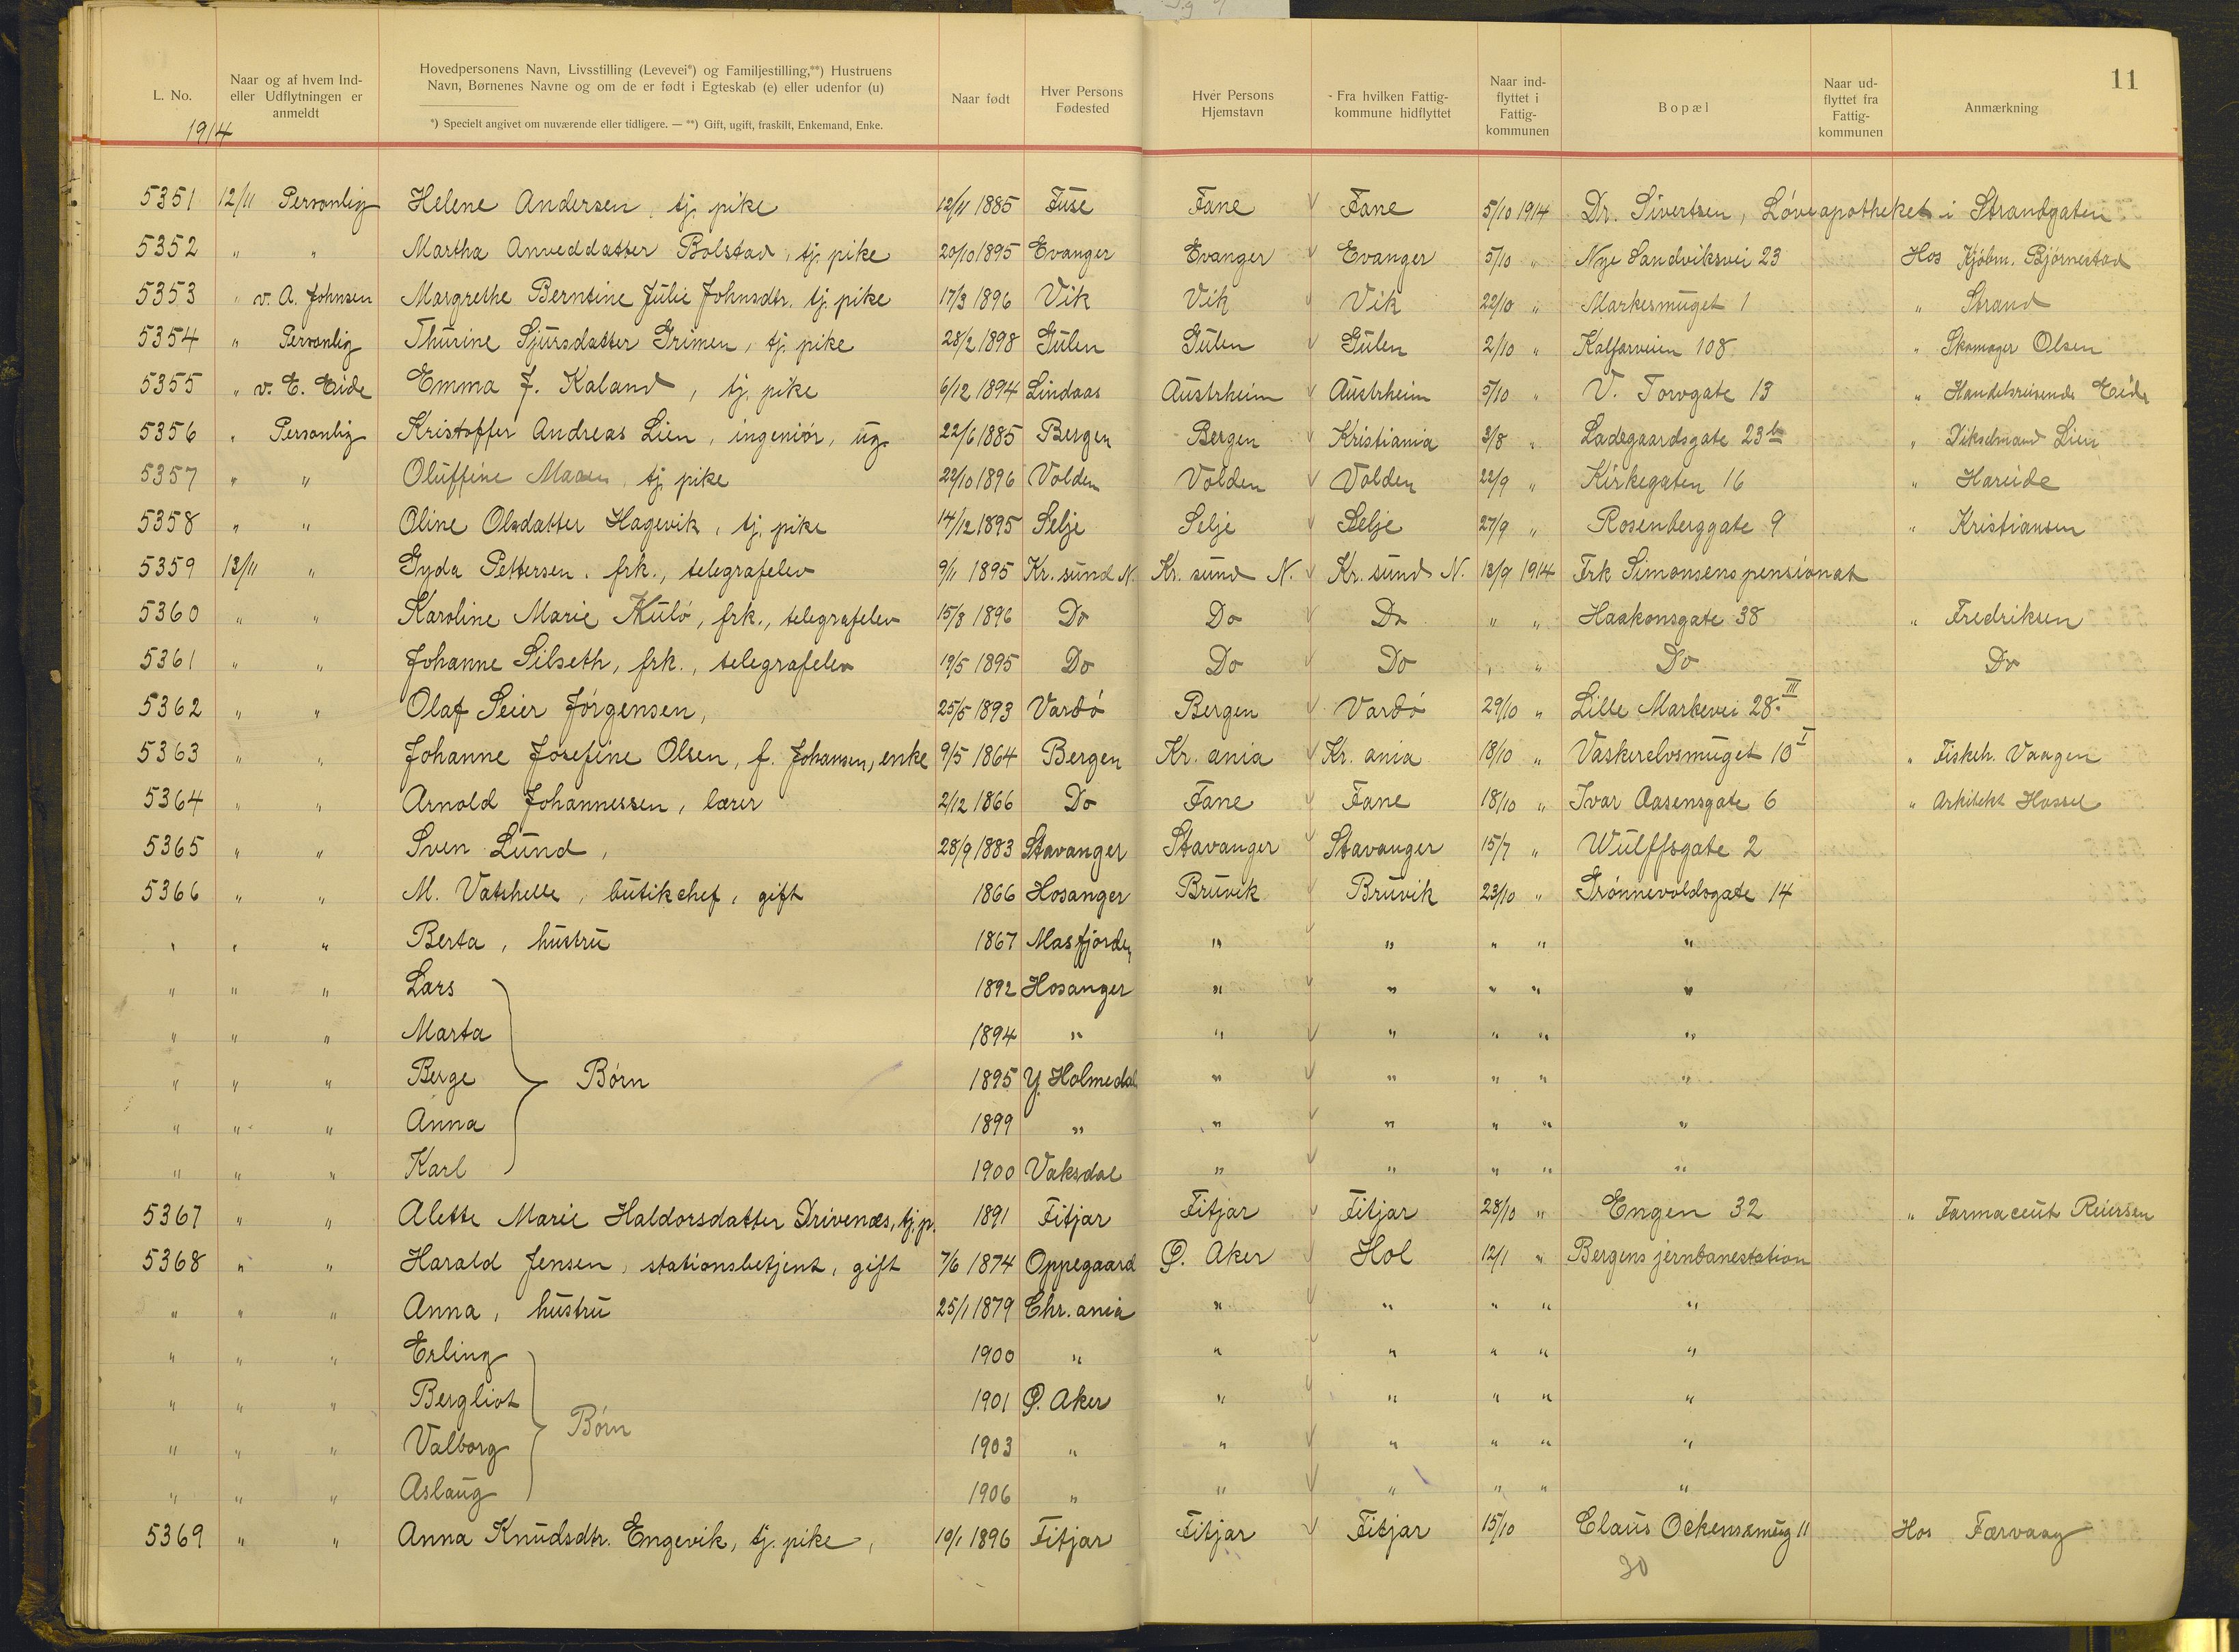 11
L. No.
1914
Naar og af hvem Ind-
eller Udflytningen er
anmeldt
Hovedpersonens Navn, Livsstilling (Levevei*) og Familjestilling,**) Hustruens
Navn, Børnenes Navne og om de er født i Egteskab (e) eller udenfor (u)
*) Specielt angivet om nuværende eller tidligere. — **) Gift, ugift, fraskilt, Enkemand, Enke.
Naar født
Hver Persons
Fødested
Hver Persons
Hjemstavn
Fra hvilken Fattig-
kommune hidflyttet
Naar ind-
flyttet i
Fattig-
kommunen
Bopæl
Naar ud-
flyttet fra
Fattig-
kommunen
Anmærkning
5351 12/11 Personlig Helene Andersen, tj. pike 12/11 1885 Fuse Fane Fane 5/10 1914 Dr. Sivertsen, Løveapotheket i Strandgaten
5352 " " Martha Anveddatter Bolstad, tj. pike 20/10 1895 Evanger Evanger Evanger 5/10 " Nye Sandviksvei 23 Hos Kjøbm. Bjørnestad
5353 " v. A. Johnsen Margrethe Berntine Julie Johnsdtr. tj. pike 17/3 1896 Vik Vik Vik 22/10 " Markesmuget 1 " Strand
5354 " Personlig Thurine Sjursdatter Grimen, tj. pike 28/2 1898 Gulen Gulen Gulen 2/10 " Kalfarveien 108 " Skomager Olsen
5355 " v. E. Eide Emma J. Kaland, tj. pike 6/12 1894 Lindaas Austrheim Austrheim 5/10 " V. Torvgate 13 " Handelsreisende Eide
5356 " Personlig Kristoffer Andreas Lien, ingeniør, ug. 22/6 1885 Bergen Bergen Kristiania 3/8 " Ladegaardsgate 23b " Lien
5357 " " Oluffine tj. pike 22/10 1896 Volden Volden Volden 22/9 " Kirkegaten 16 " Hareide
5358 " " Oline Olsdatter Hagevik, tj. pike 14/12 1895 Selje Selje Selje 27/9 " Rosenberggate 9 " Kristiansen
5359 13/11 " Gyda Pettersen, frk., telegrafelev 9/11 1895 Kr. sund N. Kr. sund N. Kr. sund N. 13/9 1914 Frk Simonsens pensionat
5360 " " Karoline Marie Kulø, frk., telegrafelev 15/8 1896 Do Do Do " " Haakonsgate 38 " Fredriksen
5361 " " Johanne Silseth, frk., telegrafelev 19/5 1895 Do Do Do " " Do Do
5362 " " Olaf Seier Jørgensen, 25/5 1893 Vardø Bergen Vardø 29/10 " Lille Markevei 28 III
5363 " " Johanne Josefine Olsen, f. Johansen, enke 9/5 1864 Bergen Kr. ania Kr. ania 18/10 " Vaskerelvsmuget 10 I " Fiskeh. Vaagen
5364 " " Arnold Johannessen, lærer 2/12 1866 Do Fane Fane 18/10 " Ivar Aasensgate 6 " Arkitekt Hassel
5365 " " Sven Lund, 28/9 1883 Stavanger Stavanger Stavanger 15/7 " Wulffsgate 2
5366 " " M. Vatshelle, butikchef, gift 1866 Hosanger Bruvik Bruvik 23/10 " Grønnevoldsgate 14
" " " Berta, hustru 1867 Masfjorden " " " " "
" " " Lars 1892 Hosanger " " " " "
" " " Marta 1894 " " " " " "
" " " Berge Børn 1895 Y. Holmedal " " " " "
" " " Anna 1899 " " " " " "
" " " Karl 1900 Vaksdal " " " " "
5367 " " Alette Marie Haldorsdatter Drivenæs, tj. p. 1891 Fitjar Fitjar Fitjar 28/10 " Engen 32 " Farmaceut Reiersen
5368 " " Harald Jensen, stationsbetjent, gift 7/6 1874 Oppegaard Ø. Aker Hol 12/1 " Bergens jernbanestation
" " " Anna, hustru 25/1 1879 Chr. ania " " " " "
" " " Erling 1900 " " " " " "
" " " Bergliot 1901 Ø. Aker " " " " "
Børn
" " " Valborg 1903 " " " " " "
" " " Aslaug 1906 " " " " " "
5369 " " Anna Knudsdtr. Engevik, tj. pike, 10/1 1896 Fitjar Fitjar Fitjar 15/10 Claus Ockensmug 11 Hos Færvaag
30